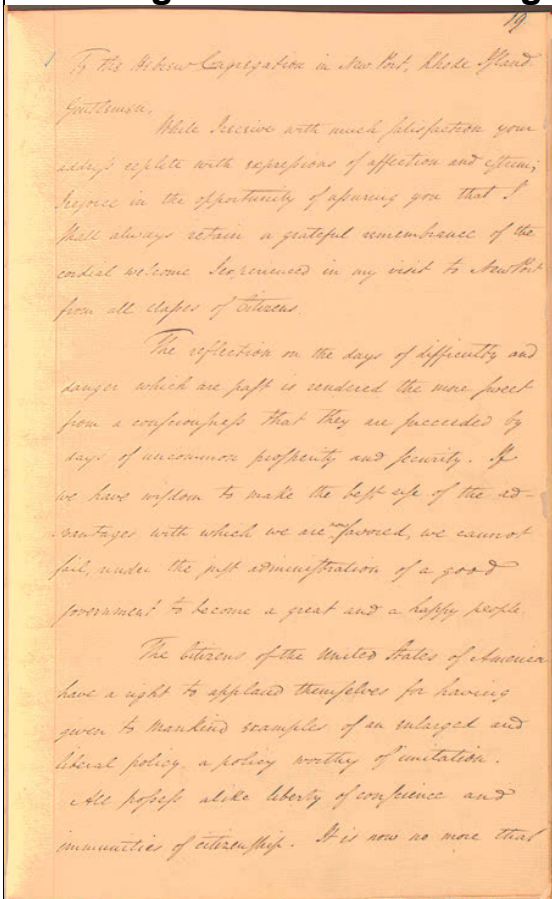 19.
To the Hebrew Congregation in New Port, Rhode Island.
Gentlemen,
While I receive with much satisfaction your
address replete with expressions of affection and esteem;
I rejoice in the opportunity of assuring you that I
shall always retain a grateful remembrance of the
cordial welcome I experienced in my visit to New Port
from all classes of Citizens.
The reflection on the days of difficulty and
danger which are past is rendered the more sweet
from a consciousness that they are succeeded by
days of uncommon prosperity and security. If
we have wisdom to make the best use of the ad-
vantages with which we are now favored, we cannot
fail, under the just administration of a good
government to become a great and a happy people.
The Citizens of the United States of America
have a right to applaud themselves for having
given to Mankind examples of an enlarged and
liberal policy, a policy worthy of imitation.
All possess alike liberty of conscience and
immunities of citizenship. It is now no more that